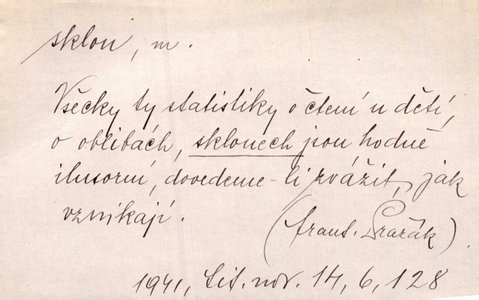 sklon, m.
Všecky ty statistiky o čtení u dětí,
o oblibách, sklonech jsou hodně
ilusorní, dovedeme-li zvážit, jak
vznikají.
(Frant. Pražák)
1941, Lit. nov. 14, 6, 128